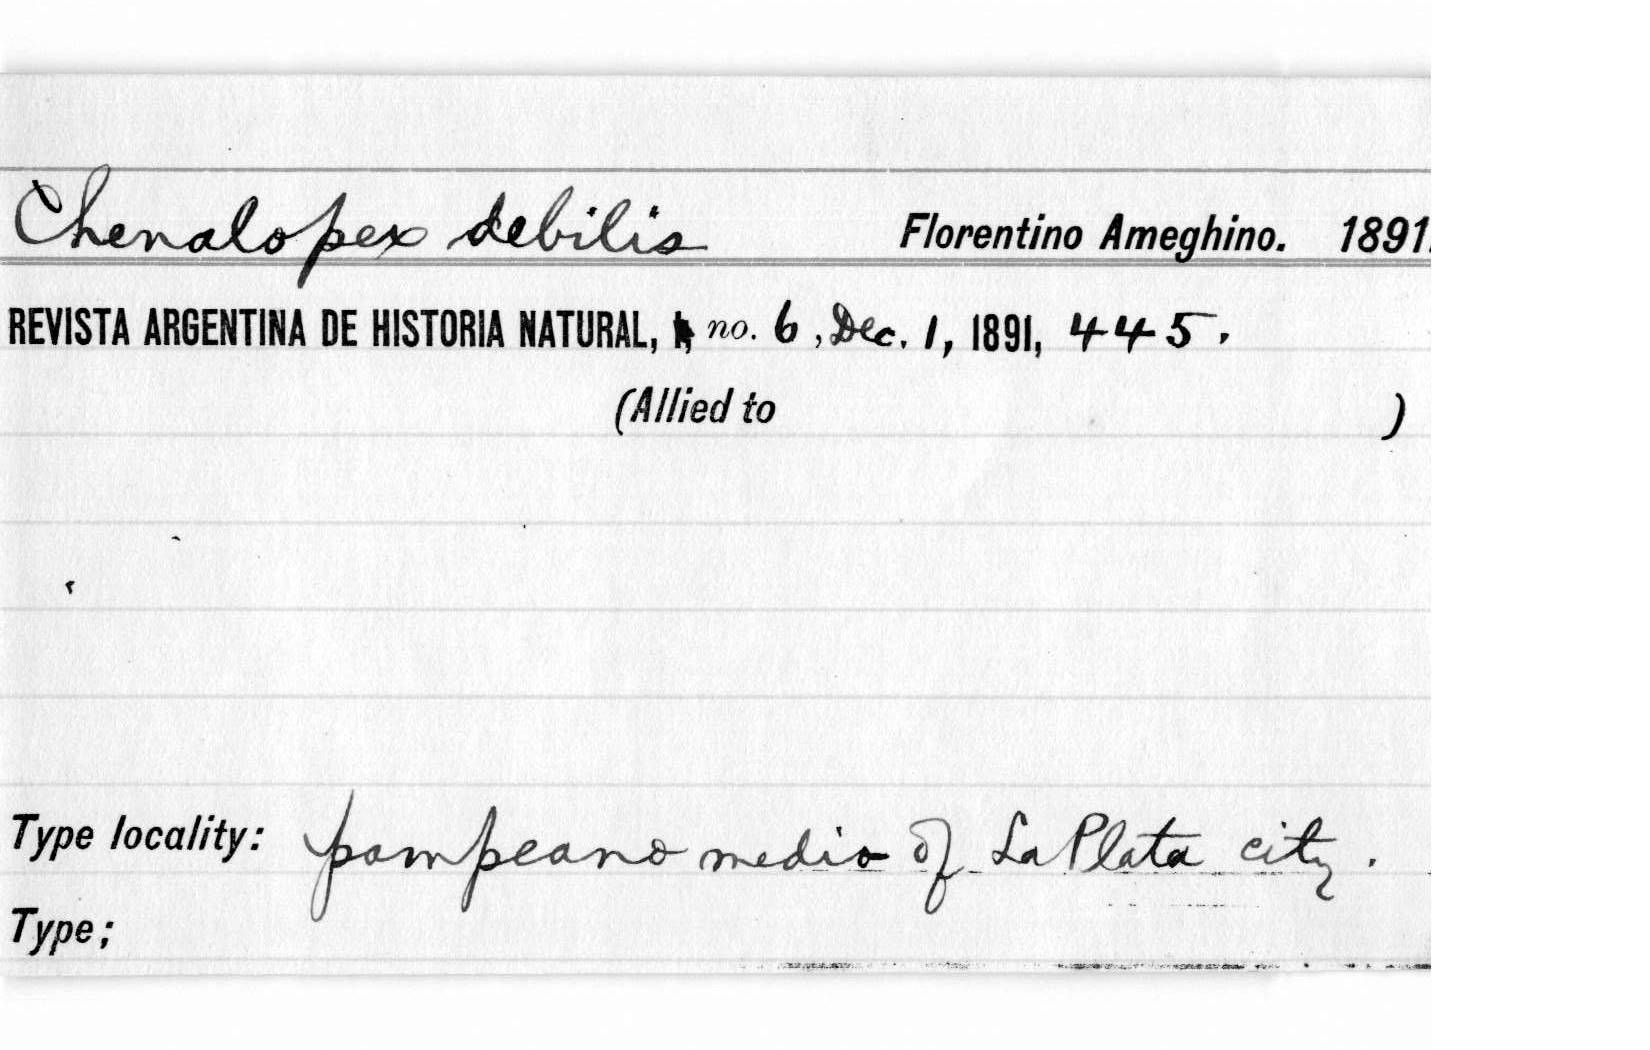 Chenalopex debilis Florentino Ameghino. 1891.
REVISTA ARGENTINA DE HISTORIA NATURAL, 1, no. 6, Dec. 1, 1891, 445.
(Allied to )
Type locality: pampeano medio of La Plata city.
Type;